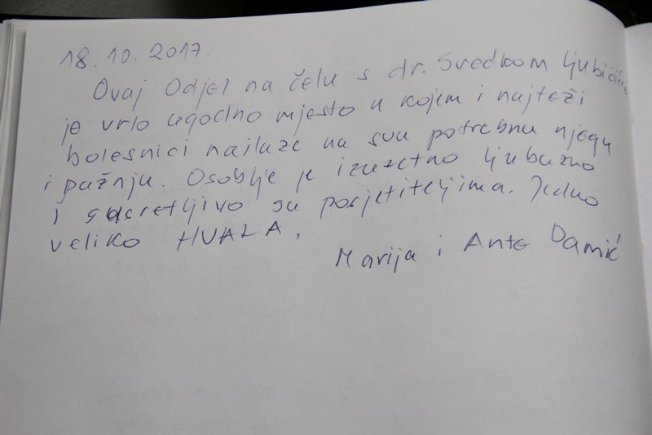 18.10.2017.
Ovaj Odjel na čelu s dr. Srećkom Ljubičić
je vrlo ugodno mjesto u kojem i najteži
bolesnici nailaze na svu potrebnu njegu
i pažnju. Osoblje je izuzetno ljubazno
i susretljivo sa posjetiteljima. Jedno
veliko HVALA.
Marija i Ante Damić